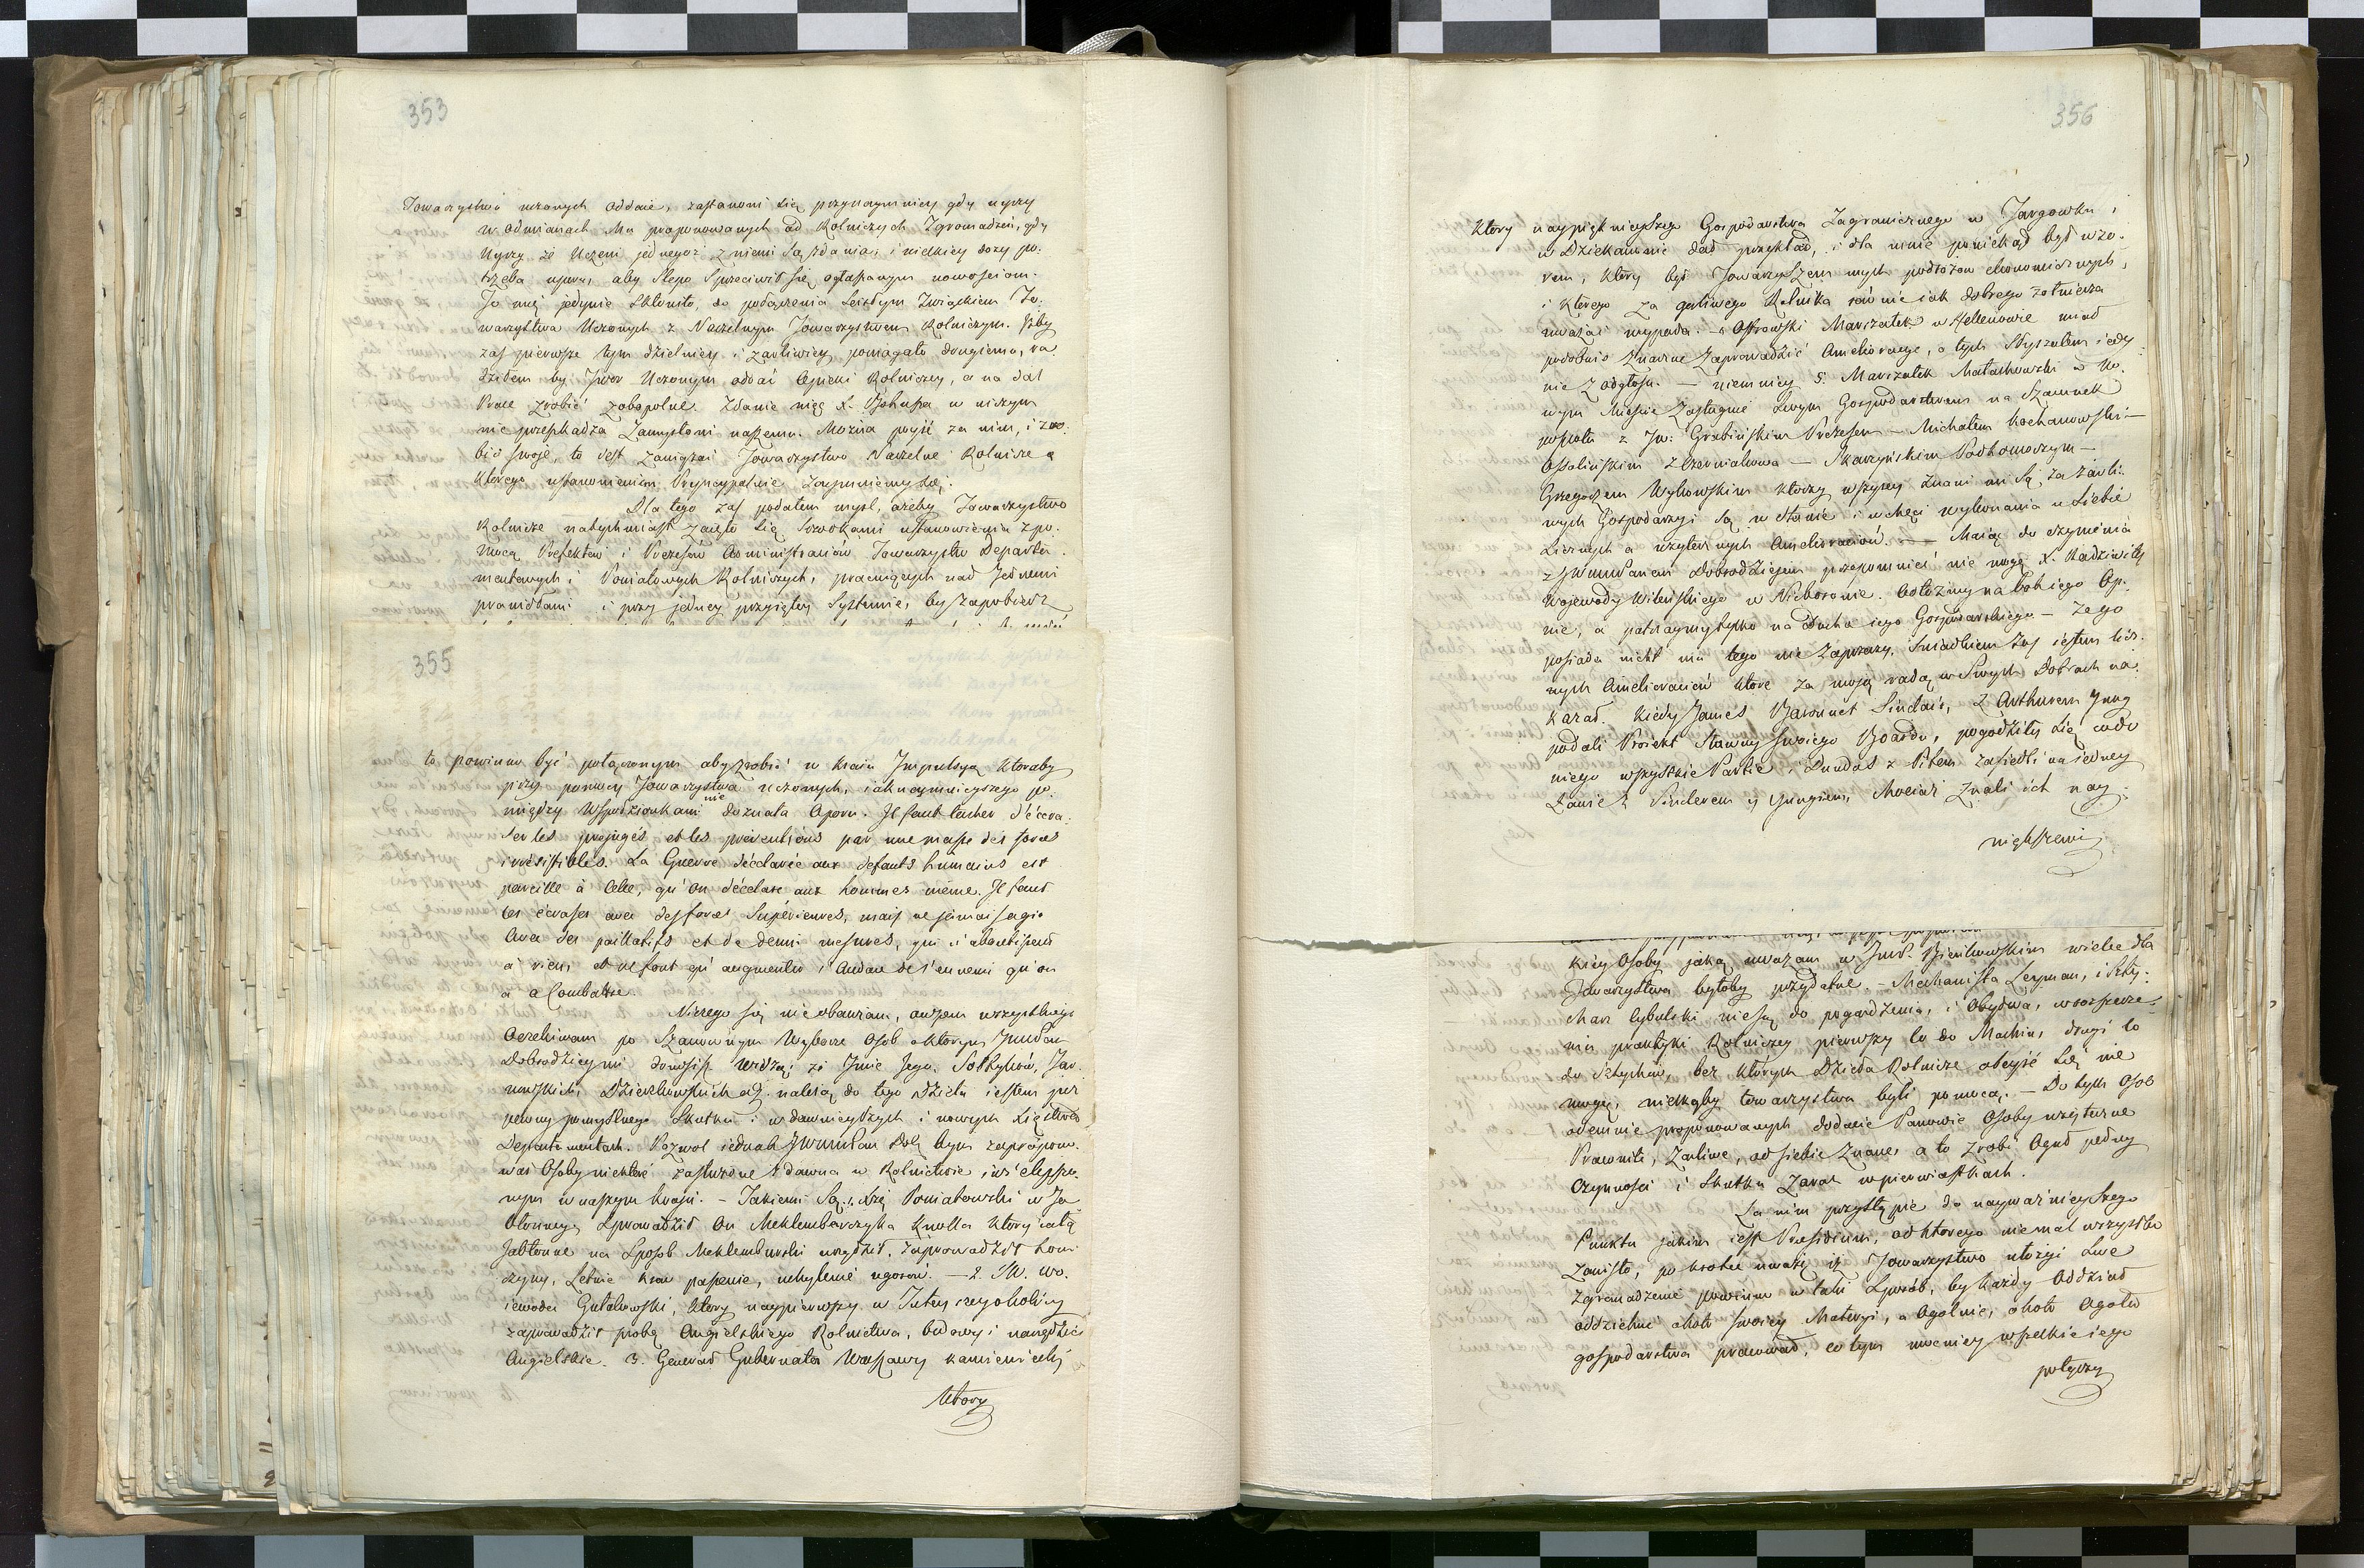 353
Towarzystwo uczonych oddaie, zastanowi się przynaymniey gdy uyrzy
w odmianach Mu proponowanych od Rolniczych Zgromadzeń, gdy
Uyrzy że Uczeni jednegoż z niemi są zdania; i wielkiey dozy po:
trzeba uporu, aby ślepo sprzeciwił się ogłaszanym nowościom.
To mię jedynie skłoniło, do podążenia ścisłym Związkiem To:
warzystwa Uczonych z Naczelnym Towarzystwem Rolniczym. Żeby
zaś pierwsze tym dzielniey i żarliwiey pomagało drugiemu, ra
dziłem by Twor Uczonym oddać Opieki Rolniczey, a na dal
Prace zrobić zobopolne. Zdanie więc X. Biskupa w niczym
nie przeszkadza Zamysłowi naszemu. Można poyść za nim, i zro:
bić swoje, to jest zawiązać Towarzystwo Naczelne Rolnicze
ktorego ustanowieniem Pryncypalnie zaymuiemy się.
Dla tego zaś podałem myśl, ażeby Towarzystwo
Rolnicze natychmiast zaięło się środkami ustanowienia z po:
mocą Prefektów i Prezesów Administraciów Towarzystw Departa
mentowych i Powiatowych Rolniczych, pracuiących nad Jednemi
prawidłami i przy jedney przyiętey Systemie, by zapobiedz
355
to powinno być połączonym aby zrobić w kraiu Impulsyą ktoraby
przy pomocy Towarzystwa uczonych, iaknaymnieyszego po:
między Wspołziomkami nie doznała Oporu. Il faut tacher d'écra:
ser les prejugés et les préventions par une masse des forces
irrésistibles. La Guerre déclarée aux defauts humains est
pareille à Celle, qu'on déclare aux hommes même. Il faut
les écraser avec des forces Supérieures, mais ne jamais agir
avec des palliatifs et de demi mesures, qui n'aboutissent
à rien, et ne font qu'augmenter l'Audace de l'ennemi qu'on
a a Combattre.
Niczego się nie obawiam, owszem wszystkiego
Oczekiwam po Szanownym Wyborze Osob o ktorym JWWPan
Dobrodziey mi donosisz. Widząc że Imie Jego, Sołtyków, Tar
nowskich, Dzierzkowskich &c. należą do tego Dzieła iestem już
pewny pomyślnego Skutku i w dawnieyszych i nowych Xięstwa
Departamentach. Pozwol iednak JWWPan Dob. bym zapropono:
wał Osoby niektóre zasłużone z dawna w Rolnictwie ieszcze lepszym
w naszym kraju. – Takiemi są: 1. Xżę Poniatowski w Ja
błonney, Sprowadził On Meklemburczyka Knolla ktory całą
Jabłonne na Sposob Meklemburski urządził, zaprowadził koni
czyny, Letnie krow pasienie, uchylenie ugorow. – 2. JW. Wo:
iewoda Gutakowski, ktory naypierwszy w Tutey szey okolicy
zaprowadził probę Angielskiego Rolnictwa, budowy i narzędzie
Angielskie. 3. Generał Gubernator Warszawy Kamieniecki
Ktory
356
Ktory naypięknieyszego Gospodarstwa Zagranicznego w Targowku,
w Dziekanowie dał przykład, i dla mnie poniekąd był wzo:
rem, ktory był Towarzyszem mych podróżow ekonomicznych,
i ktorego za gorliwego Rolnika rownie iak dobrego żołnierza
uważać wypada. – 4. Ostrowski Marszałek w Hellenowie miał
podobnie znaczne zaprowadzić Ameliorracye, o tych Słyszałem iedy
nie z odgłosu. – niemniey 5. Marszałek Małachowski w No:
wym Mieście Zasługuie swym Gospodarstwem na Szacunek
pospołu z JW. Grabińskim Prezesem – Michałem Kochanowskim –
Ossolińskim z Czerniakowa – Skarzyńskim Podkomorzym –
Grzegorzem Wykowskim ktorzy wszyscy znani mi są, za żarli:
wych Gospodarzy i są w stanie i w chęci wykonania u siebie
licznych a użytecznych Amelioraciów. – Maiąc do czynienia
z JWWmPanem Dobrodziejem przepomnieć nie mogę X. Radziwiłły
Wojewody Wileńskiego w Nieborowie. Odłożmy na bok iego Opi:
nie, a patrzaymy tylko na Ducha iego Gospodarskiego – że go
posiada nikt mu tego nie zaprzeczy. Swiadkiem zaś iestem licz:
nych Amelioraciów ktore za moją radą w Swych Dobrach na:
kazał. Kiedy James Baronnet Sinclair, z Arthurem Jung
podali Projekt Sławny Swoiego Boardu, pogodziły się co do
niego wszystkie Partie i Dundas z Pitem zasiedli na iedney
Ławie z Sinclerem y Jungiem, chociaż znali ich nay
większemi
kiey Osoby jaką uważam w JWP. Bienkowskim wielce dla
Towarzystwa byłoby przydatne. – Mechanista Leyman, i Szty:
charz Cybulski nie są do pogardzenia, i Obydwa, w rozszerze:
niu praktyki Rolniczey pierwszy co do Machin, drugi co
do Sztychów, bez których Dzieła Rolnicze obeyść się nie
mogą, wielkąby towarzystwu byli pomocą. – Do tych Osob
odemnie proponowanych dodacie Panowie Osoby wzięte ze
Prawnik, Żarliwe, od siebie znane, a to zrobi Ogół pełny
Czynności i Skutku zaraz w pierwiastkach.
Za nim przystąpię do nayważnieyszego
Punktu jakim iest Praesidium, od ktorego niemal wszystko
Zawisło, po krotce uważę iż Towarzystwo utoryi swe
Zgromadzenie powinno w taki Sposób, by każdy Oddział
oddzielnie około swoiey Materyi, a Ogolnie, około Ogołu
gospodarstwa pracował, co tym mocniey wszelkie iego
połączy